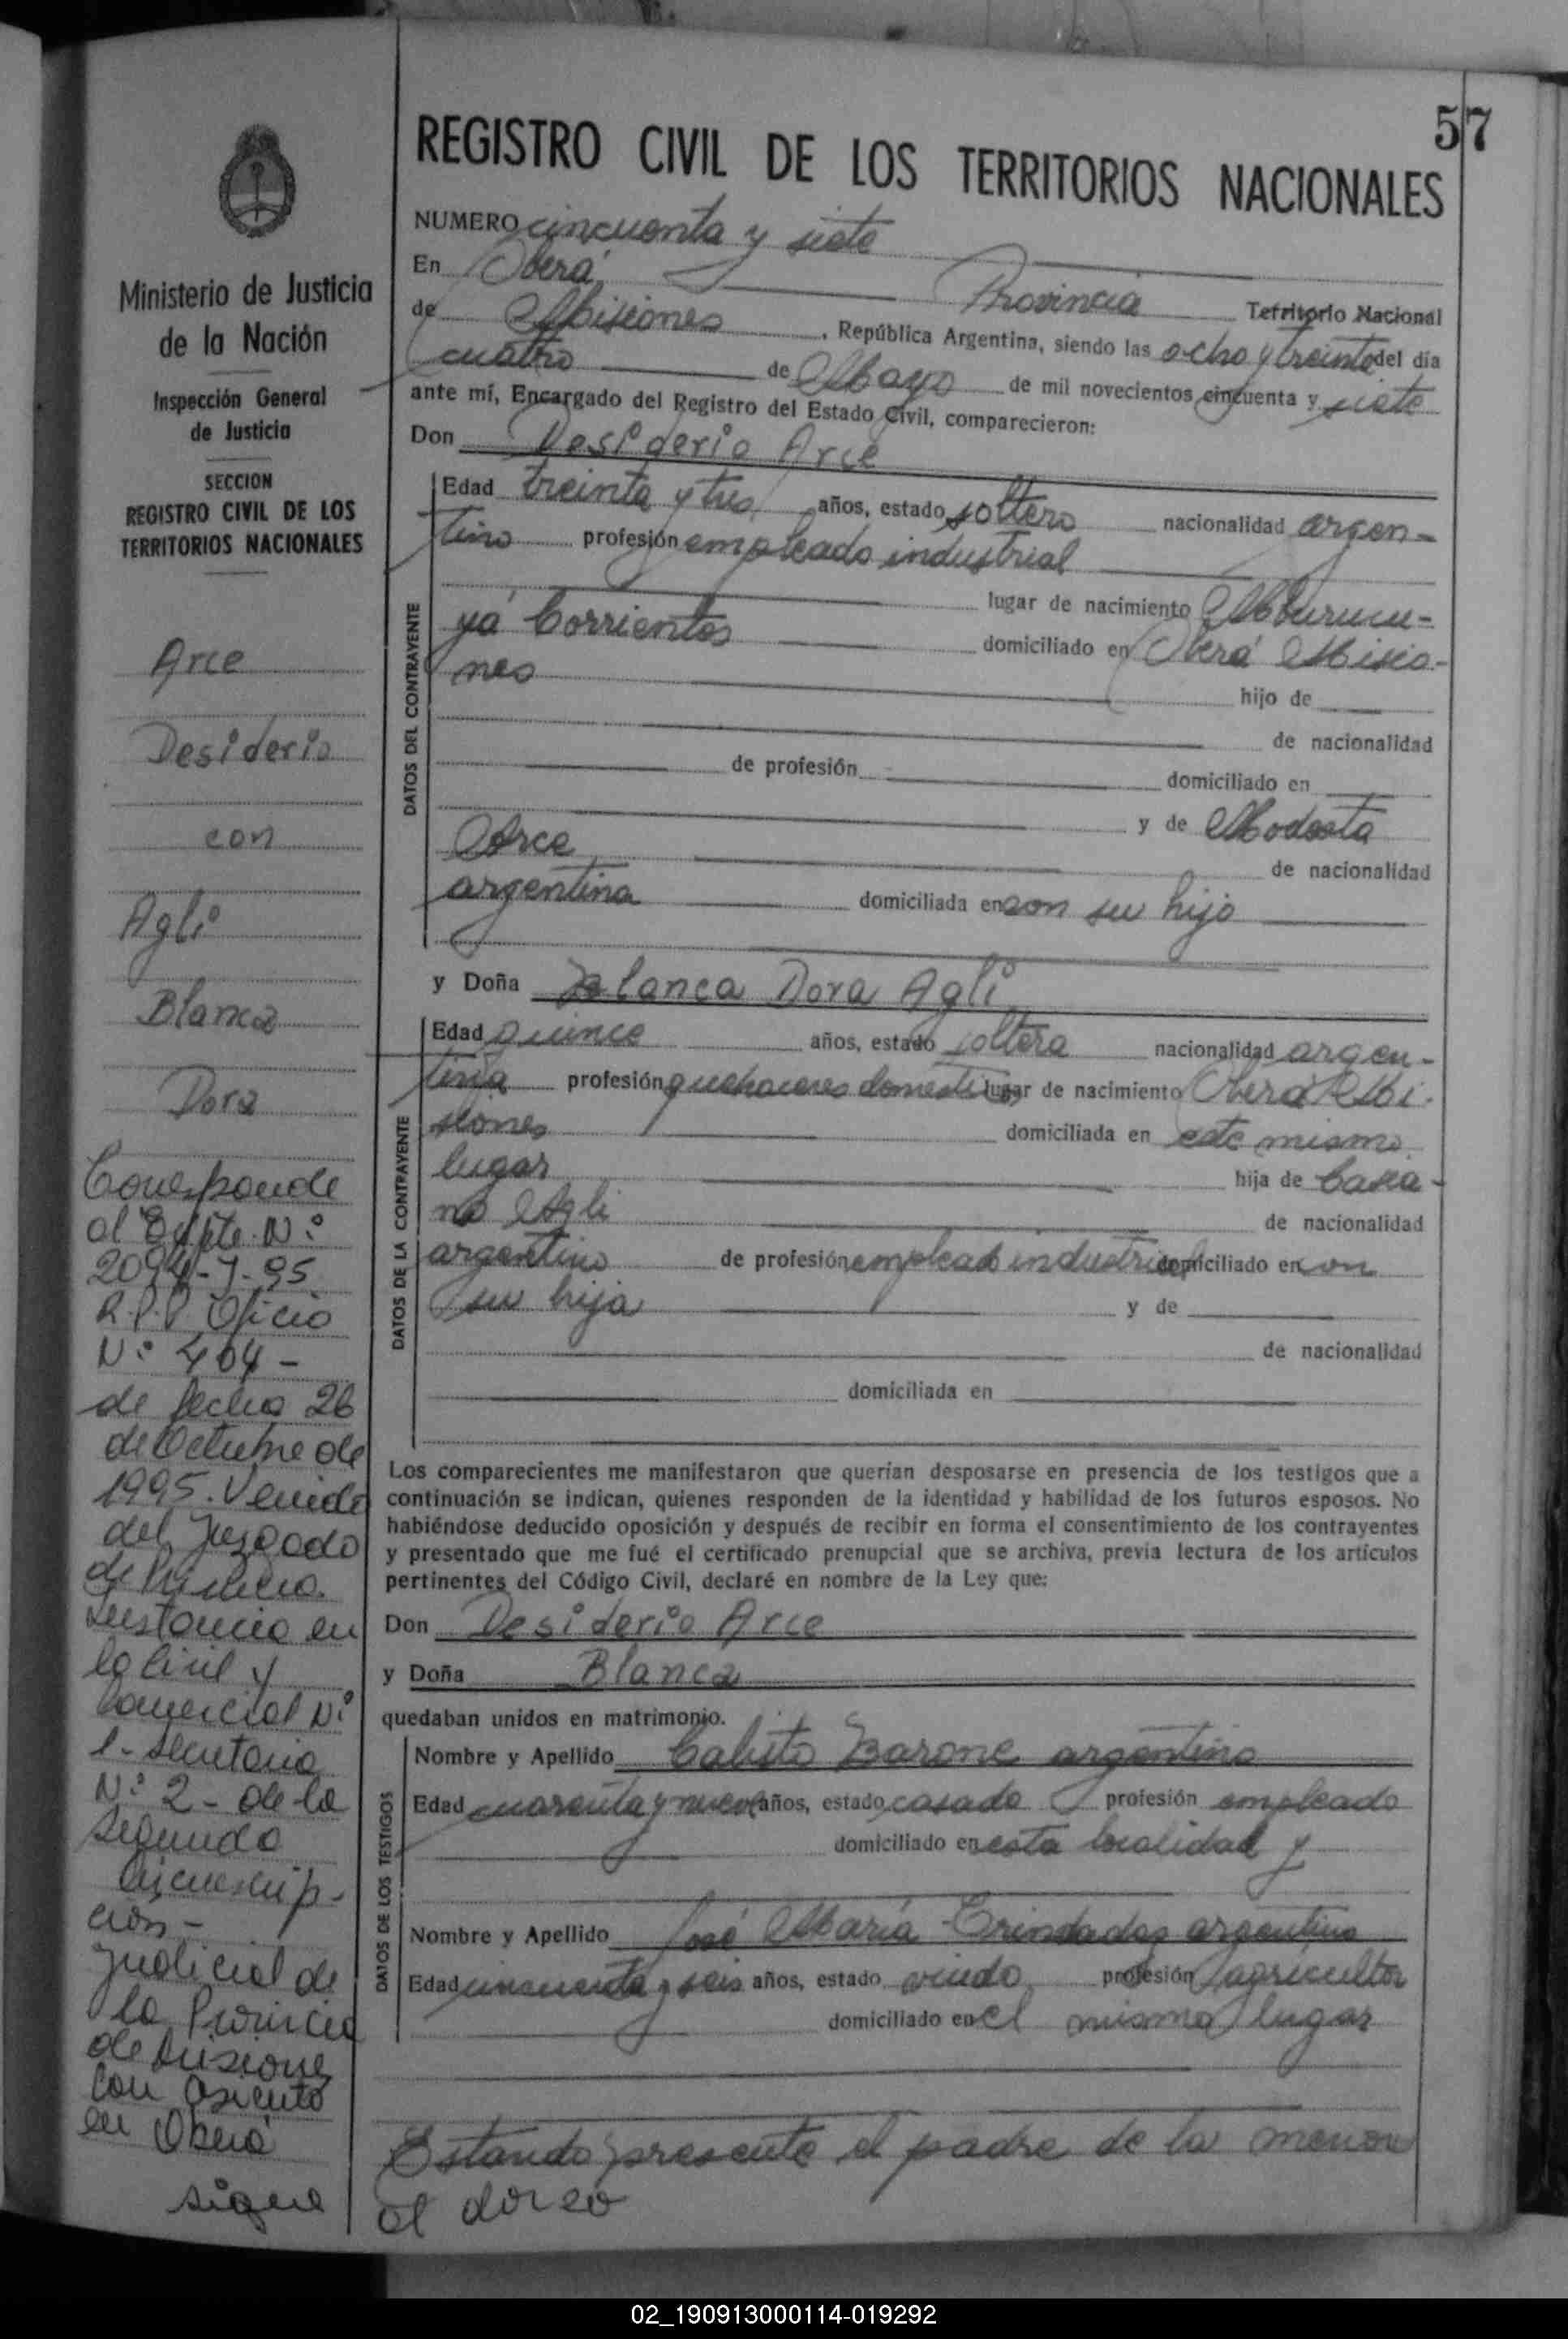 57
REGISTRO CIVIL DE LOS TERRITORIOS NACIONALES
NUMERO cincuenta y siete
En Oberá Provincia Territorio Nacional
de Misiones, República Argentina, siendo las ocho y treinta del día
cuatro de Mayo de mil novecientos cincuenta y siete
ante mí, Encargado del Registro del Estado Civil, comparecieron:
Don Desiderio Arce
DATOS DEL CONTRAYENTE
Edad treinta y tres años, estado soltero nacionalidad argen-
tino profesión empleado industrial
lugar de nacimiento Mburucu-
yá Corrientes domiciliado en Oberá Misio-
nes hijo de
de nacionalidad
de profesión domiciliado en
y de Modesta
Arce de nacionalidad
argentina domiciliada en con su hijo
y Doña Blanca Dora Agli
DATOS DE LA CONTRAYENTE
Edad quince años, estado soltera nacionalidad argen-
tina profesión quehaceres domesticos lugar de nacimiento Oberá Mi-
siones domiciliada en este mismo
lugar hija de Casia-
no Agli de nacionalidad
argentino de profesión empleado industrial domiciliado en con
su hija y de
de nacionalidad
domiciliada en
Los comparecientes me manifestaron que querían desposarse en presencia de los testigos que a
continuación se indican, quienes responden de la identidad y habilidad de los futuros esposos. No
habiéndose deducido oposición y después de recibir en forma el consentimiento de los contrayentes
y presentado que me fué el certificado prenupcial que se archiva, previa lectura de los artículos
pertinentes del Código Civil, declaré en nombre de la Ley que:
Don Desiderio Arce
y Doña Blanca
quedaban unidos en matrimonio.
DATOS DE LOS TESTIGOS
Nombre y Apellido Calisto Barone argentino
Edad cuarenta y nueve años, estado casado profesión empleado
domiciliado en esta localidad y
Nombre y Apellido José María Trindades argentino
Edad cincuenta y seis años, estado viudo profesión agricultor
domiciliado en el mismo lugar
Estando presente el padre de la menor
al dorso
Ministerio de Justicia
de la Nación
Inspección General
de Justicia
SECCION
REGISTRO CIVIL DE LOS
TERRITORIOS NACIONALES
Arce
Desiderio
con
Agli
Blanca
Dora
Corresponde
al Expte. Nº
R.P.P. Oficio
Nº 404-
de fecha 26
de Octubre de
1995. Venido
del Juzgado
de Primera
Instancia en
lo Civil y
Comercial Nº
1- Secretaria
Nº 2- de la
Segunda
Circunscrip-
ción-
Judicial de
la Provincia
de Misiones
con asiento
en Oberá
sigue
02_190913000114-019292